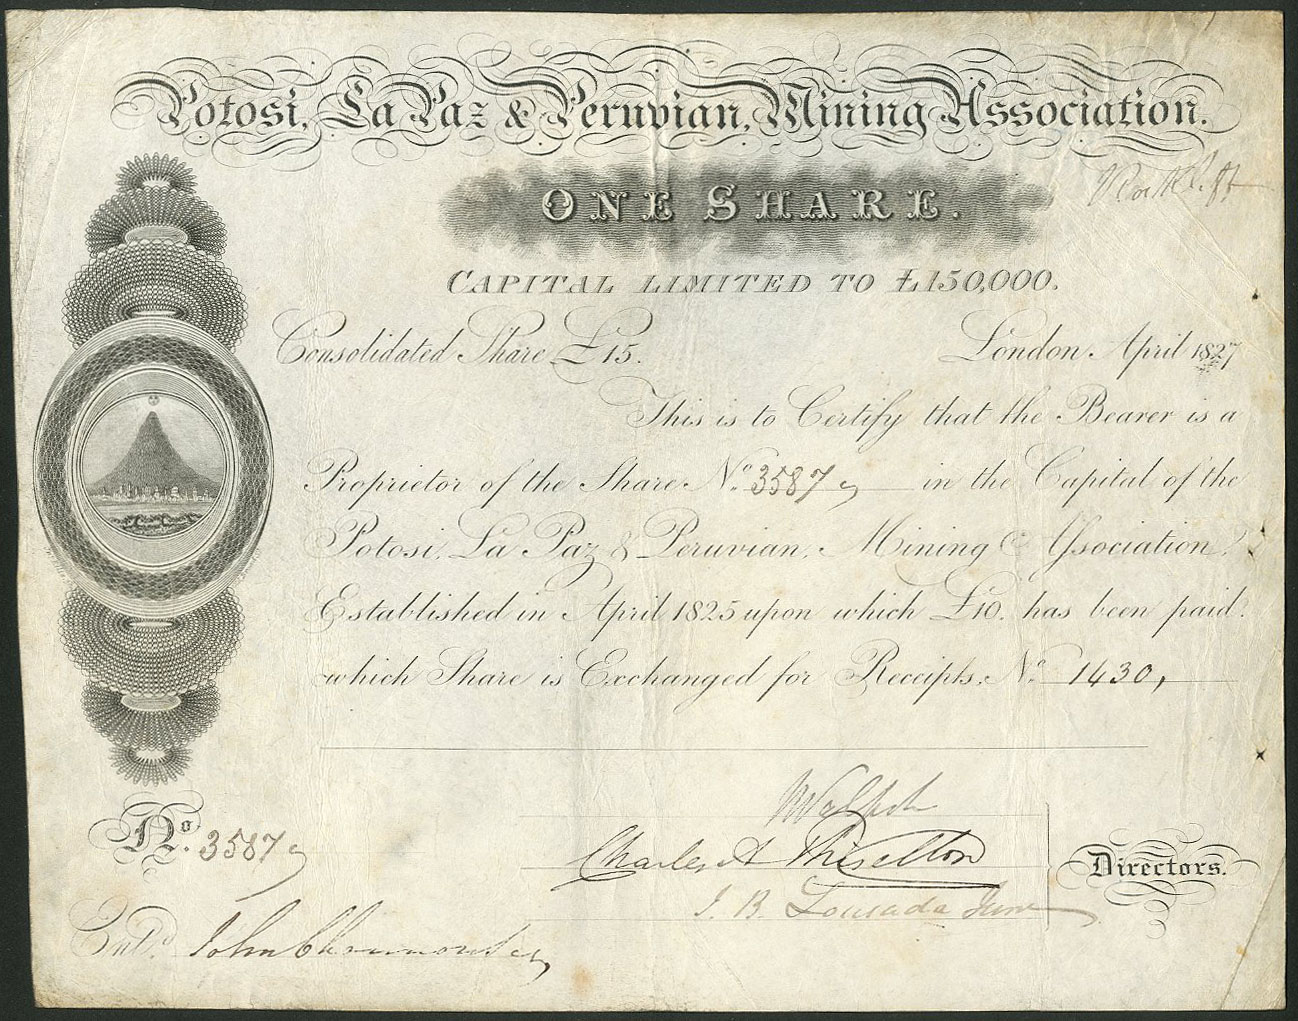 Potosi, La Paz & Peruvian, Mining Association.
ONE SHARE.
CAPITAL LIMITED TO £150,000.
Consolidated Share £15. London. April 1827
This is to Certify that the Bearer is a
Proprietor of the Share No. 3587 in the Capital of the
Potosi, La Paz & Peruvian, Mining Association,
Established in April 1825 upon which £10. has been paid.
which Share is Exchanged for Receipts, No. 1430,
Charles A Thiselton
J. B. Lousada Junr
Directors.
No. 3587
Entd. John